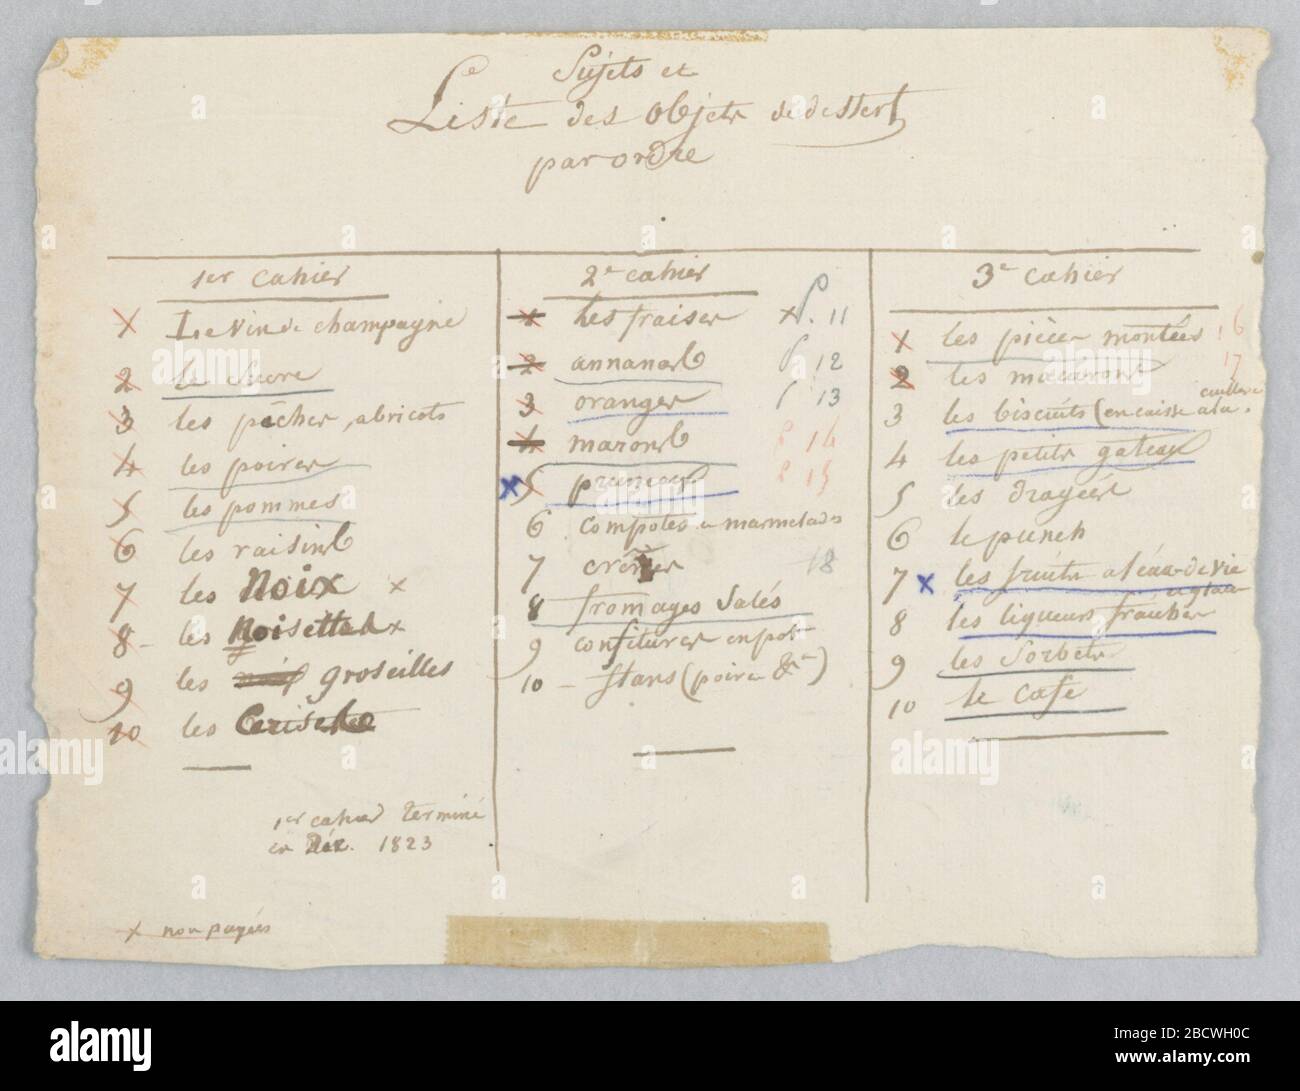 Sujets et
Liste des objets de dessert
par ordre
1er cahier
X Le Vin de champagne
2 le sucre
3 les pêches, abricots
4 les poires
5 les pommes
6 les raisins
7 les Noix x
8 - les Noisettes x
9 les groseilles
10 les Cerises
1er cahier terminé
en Déc. 1823
x non payés
2e cahier
1 Les fraises x 11
2 annanas 12
3 oranges 13
4 marons 14
x 5 pruneaux 15
6 compotes et marmelades
7 crêmes 18
8 fromages salés
9 confitures en pot
10 - flans (poires &c)
3e cahier
1 les pièces montées 16
2 les macarons 17
3 les biscuits (en caisse a la cuillere
4 les petits gateaux
5 les dragées
6 le punch
7 x les fruits a l'eau-de-vie
8 les liqueurs fraiches et glaces
9 les Sorbets
10 le Café
alamy
Image ID: 2BCWH0C
www.alamy.com